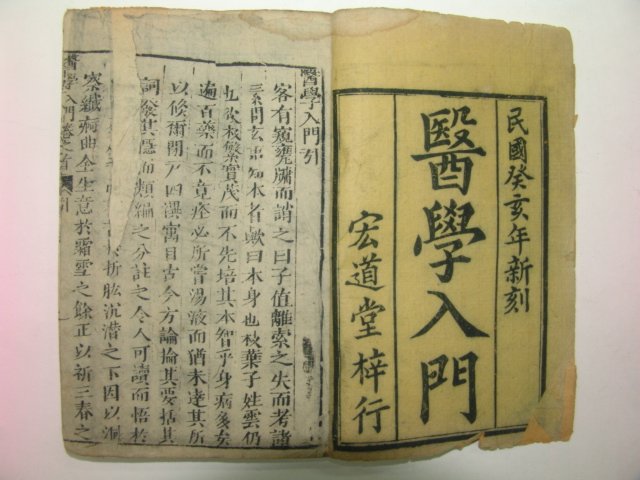 民國癸亥年新刻
醫學入門
宏道堂梓行
醫學入門引
客有窺甕牖而誚之曰子值離索之失而考諸
素問玄語知本者歟曰本身也枝葉子姓雲仍
也欲枝繁實茂而不先培其本智乎身病多矣
遍百藥而不竟痊必所嘗湯液而猶未達其所
以候爾閉戶四禩寓目古今方論掄其要括其
詞發其隱而類編之分註之令人可讀而悟於
於折肱沉潛之下因以洞
察纖痾曲全生意於霜雪之餘正以祈三春之
醫學入門卷之首 引